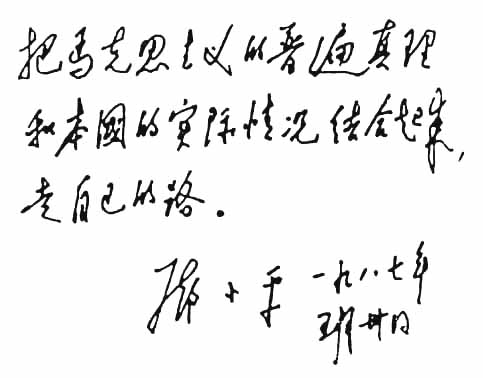 把马克思主义的普遍真理
和本國的实际情况结合起来,
走自己的路。
邓小平 一九八七年
日